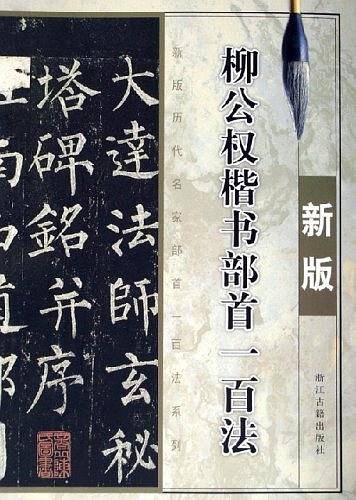 柳公权楷书部首一百法
新版
浙江古籍出版社
新版历代名家部首一百法系列
大達法師玄秘
塔碑銘并序